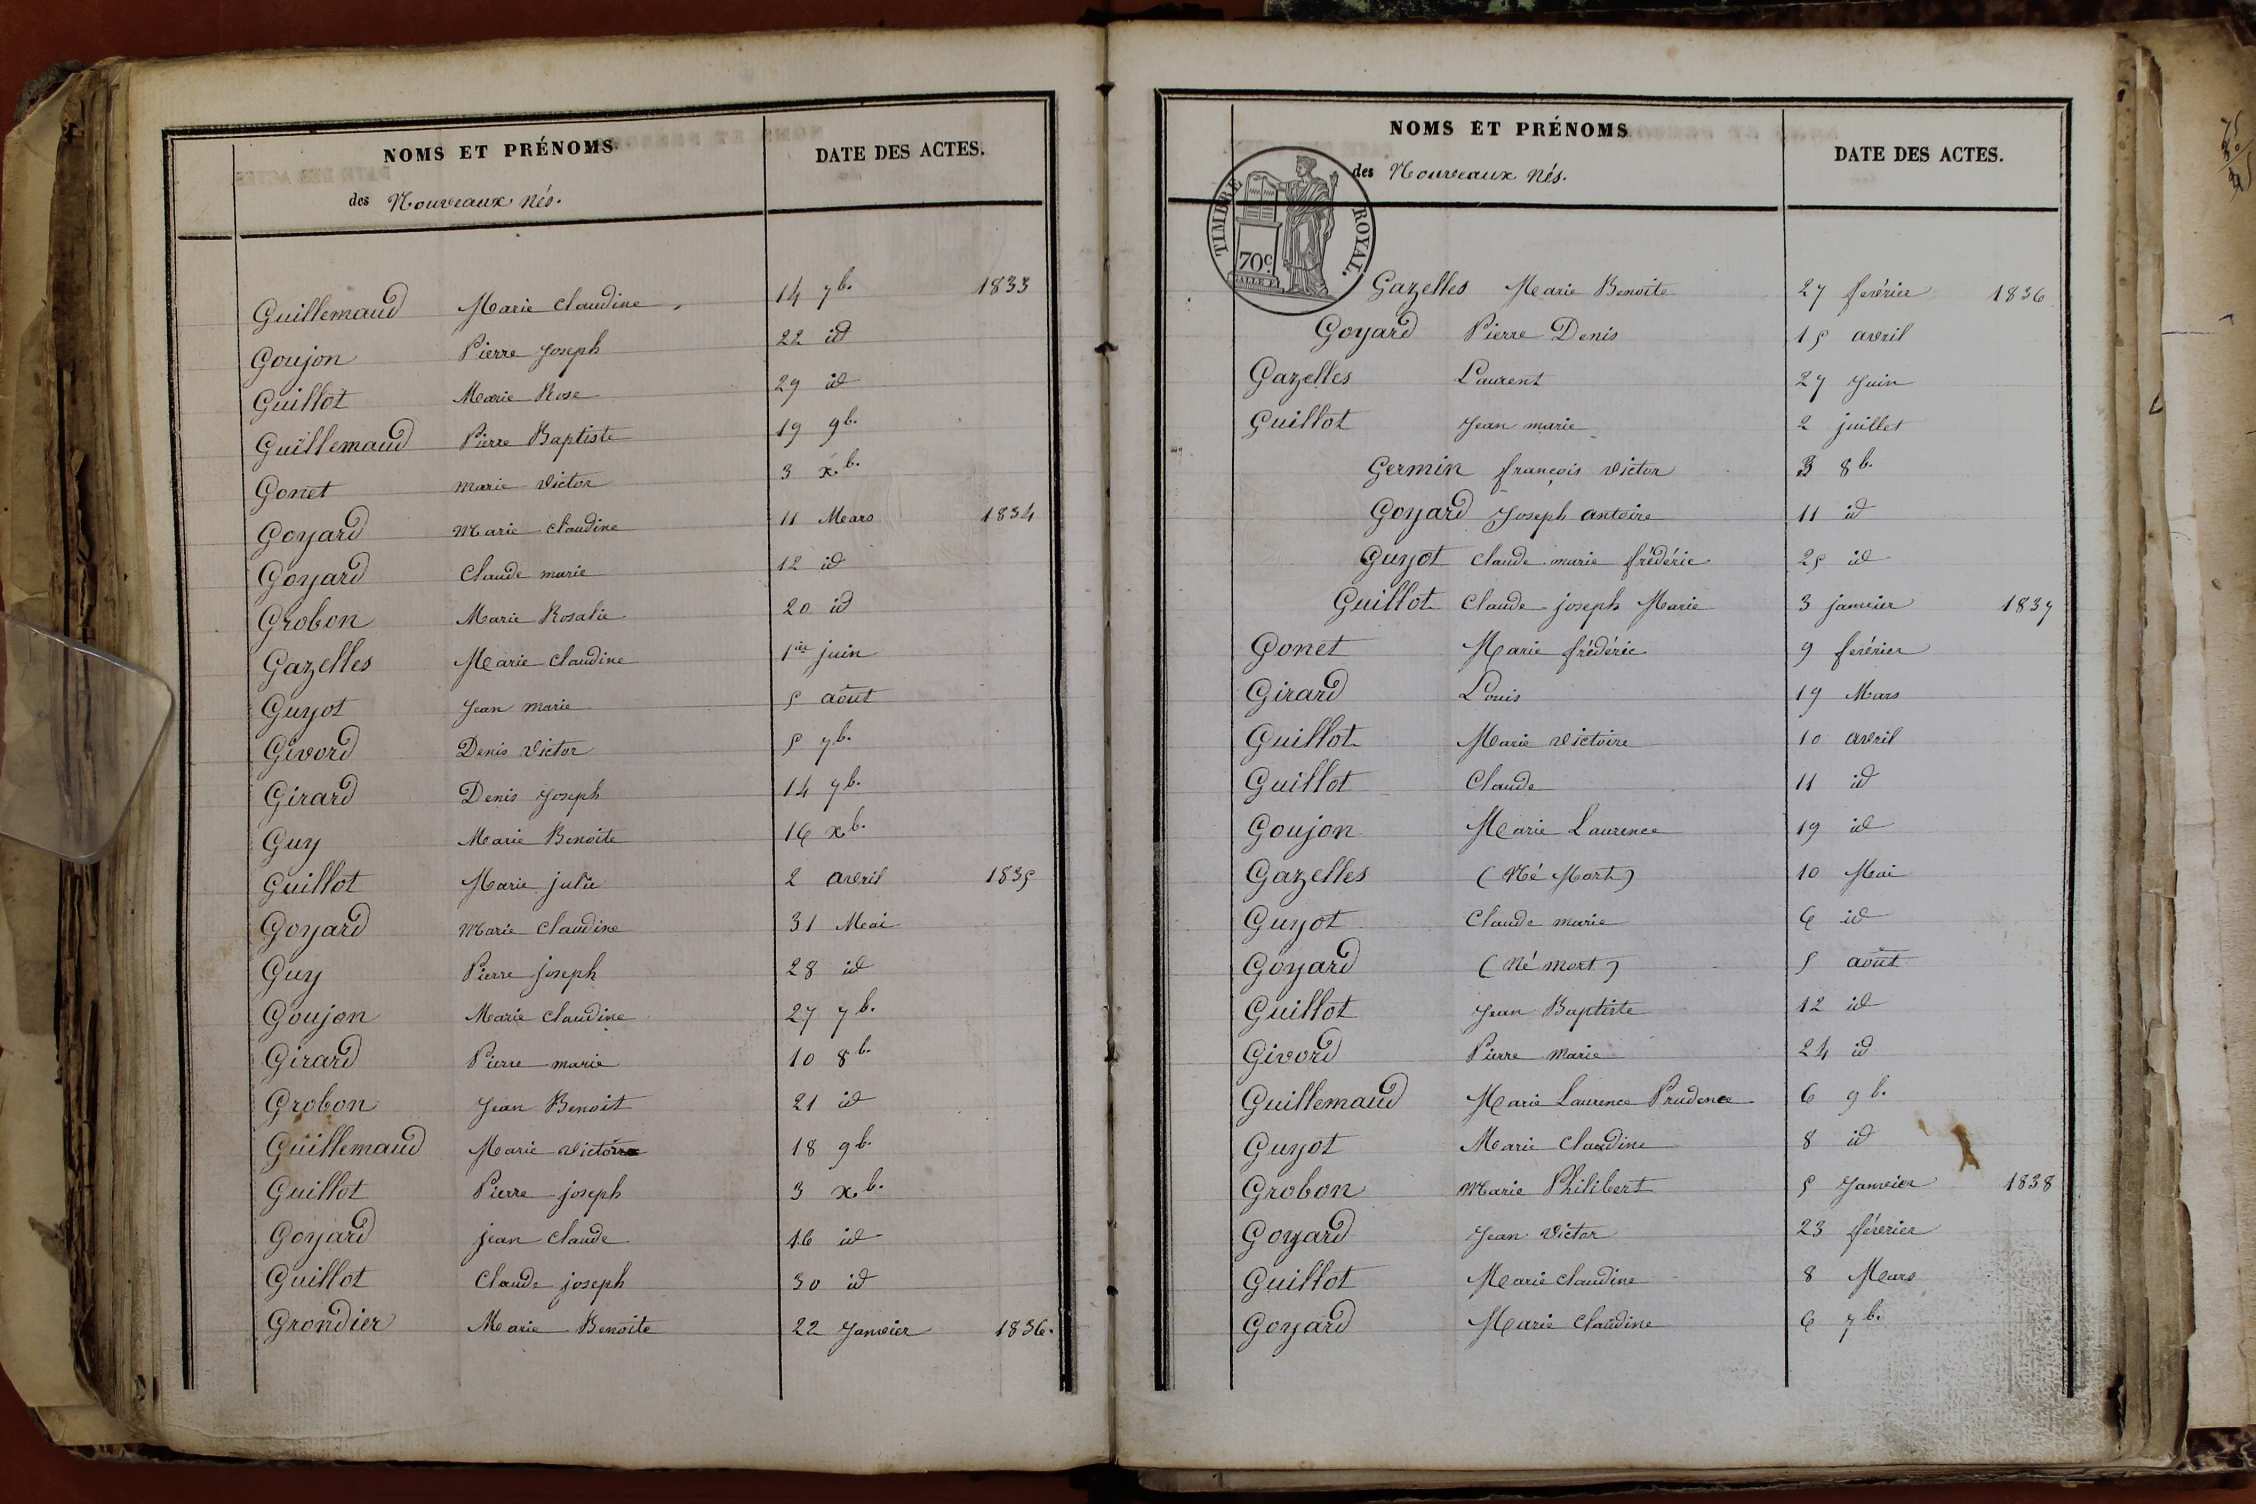 NOMS ET PRÉNOMS
DATE DES ACTES.
des Nouveaux Nés.
Guillemaud Marie Claudine 14 7b. 1833
Goujon Pierre Joseph 22 id
Guillot Marie Rose 29 id
Guillemaud Pierre Baptiste 19 9b.
Gonet marie victor 3 x.b.
Goyard Marie claudine 11 Mars 1834
Goyard Claude marie 12 id
Grobon Marie Rosalie 20 id
Gazelles Marie Claudine 1er juin
Guyot Jean marie 5 août
Givord Denis Victor 5 7b.
Girard Denis Joseph 14 7b.
Guy Marie Benoite 16 xb.
Guillot Marie julie 2 avril 1835
Goyard Marie Claudine 31 Mai
Guy Pierre joseph 28 id
Goujon Marie Claudine 27 7b.
Girard Pierre marie 10 8b.
Grobon Jean Benoit 21 id
Guillemaud Marie victoire 18 9b.
Guillot Pierre joseph 3 xb.
Goyard jean Claude 16 id
Guillot Claude joseph 30 id
Grondier Marie Benoite 22 Janvier 1836.
NOMS ET PRÉNOMS
DATE DES ACTES.
des Nouveaux Nés.
TIMBRE ROYAL.
70c.
Gazelles Marie Benoite 27 février 1836
Goyard Pierre Denis 15 avril
Gazelles Laurent 27 Juin
Guillot Jean marie 2 juillet
Germin françois victor 3 8b.
Goyard Joseph antoine 11 id
Guyot Claude marie frédéric 25 id
Guillot Claude joseph Marie 3 janvier 1837
Gonet Marie frédéric 9 février
Girard Louis 19 Mars
Guillot Marie victoire 10 avril
Guillot Claude 11 id
Goujon Marie Laurence 19 id
Gazelles (Né Mort) 10 Mai
Guyot Claude marie 6 id
Goyard (Né mort) 5 août
Guillot Jean Baptiste 12 id
Givord Pierre Marie 24 id
Guillemaud Marie Laurence Prudence 6 9b.
Guyot Marie Claudine 8 id
Grobon Marie Philibert 5 Janvier 1838
Goyard Jean Victor 23 février
Guillot Marie Claudine 8 Mars
Goyard Marie Claudine 6 7b.